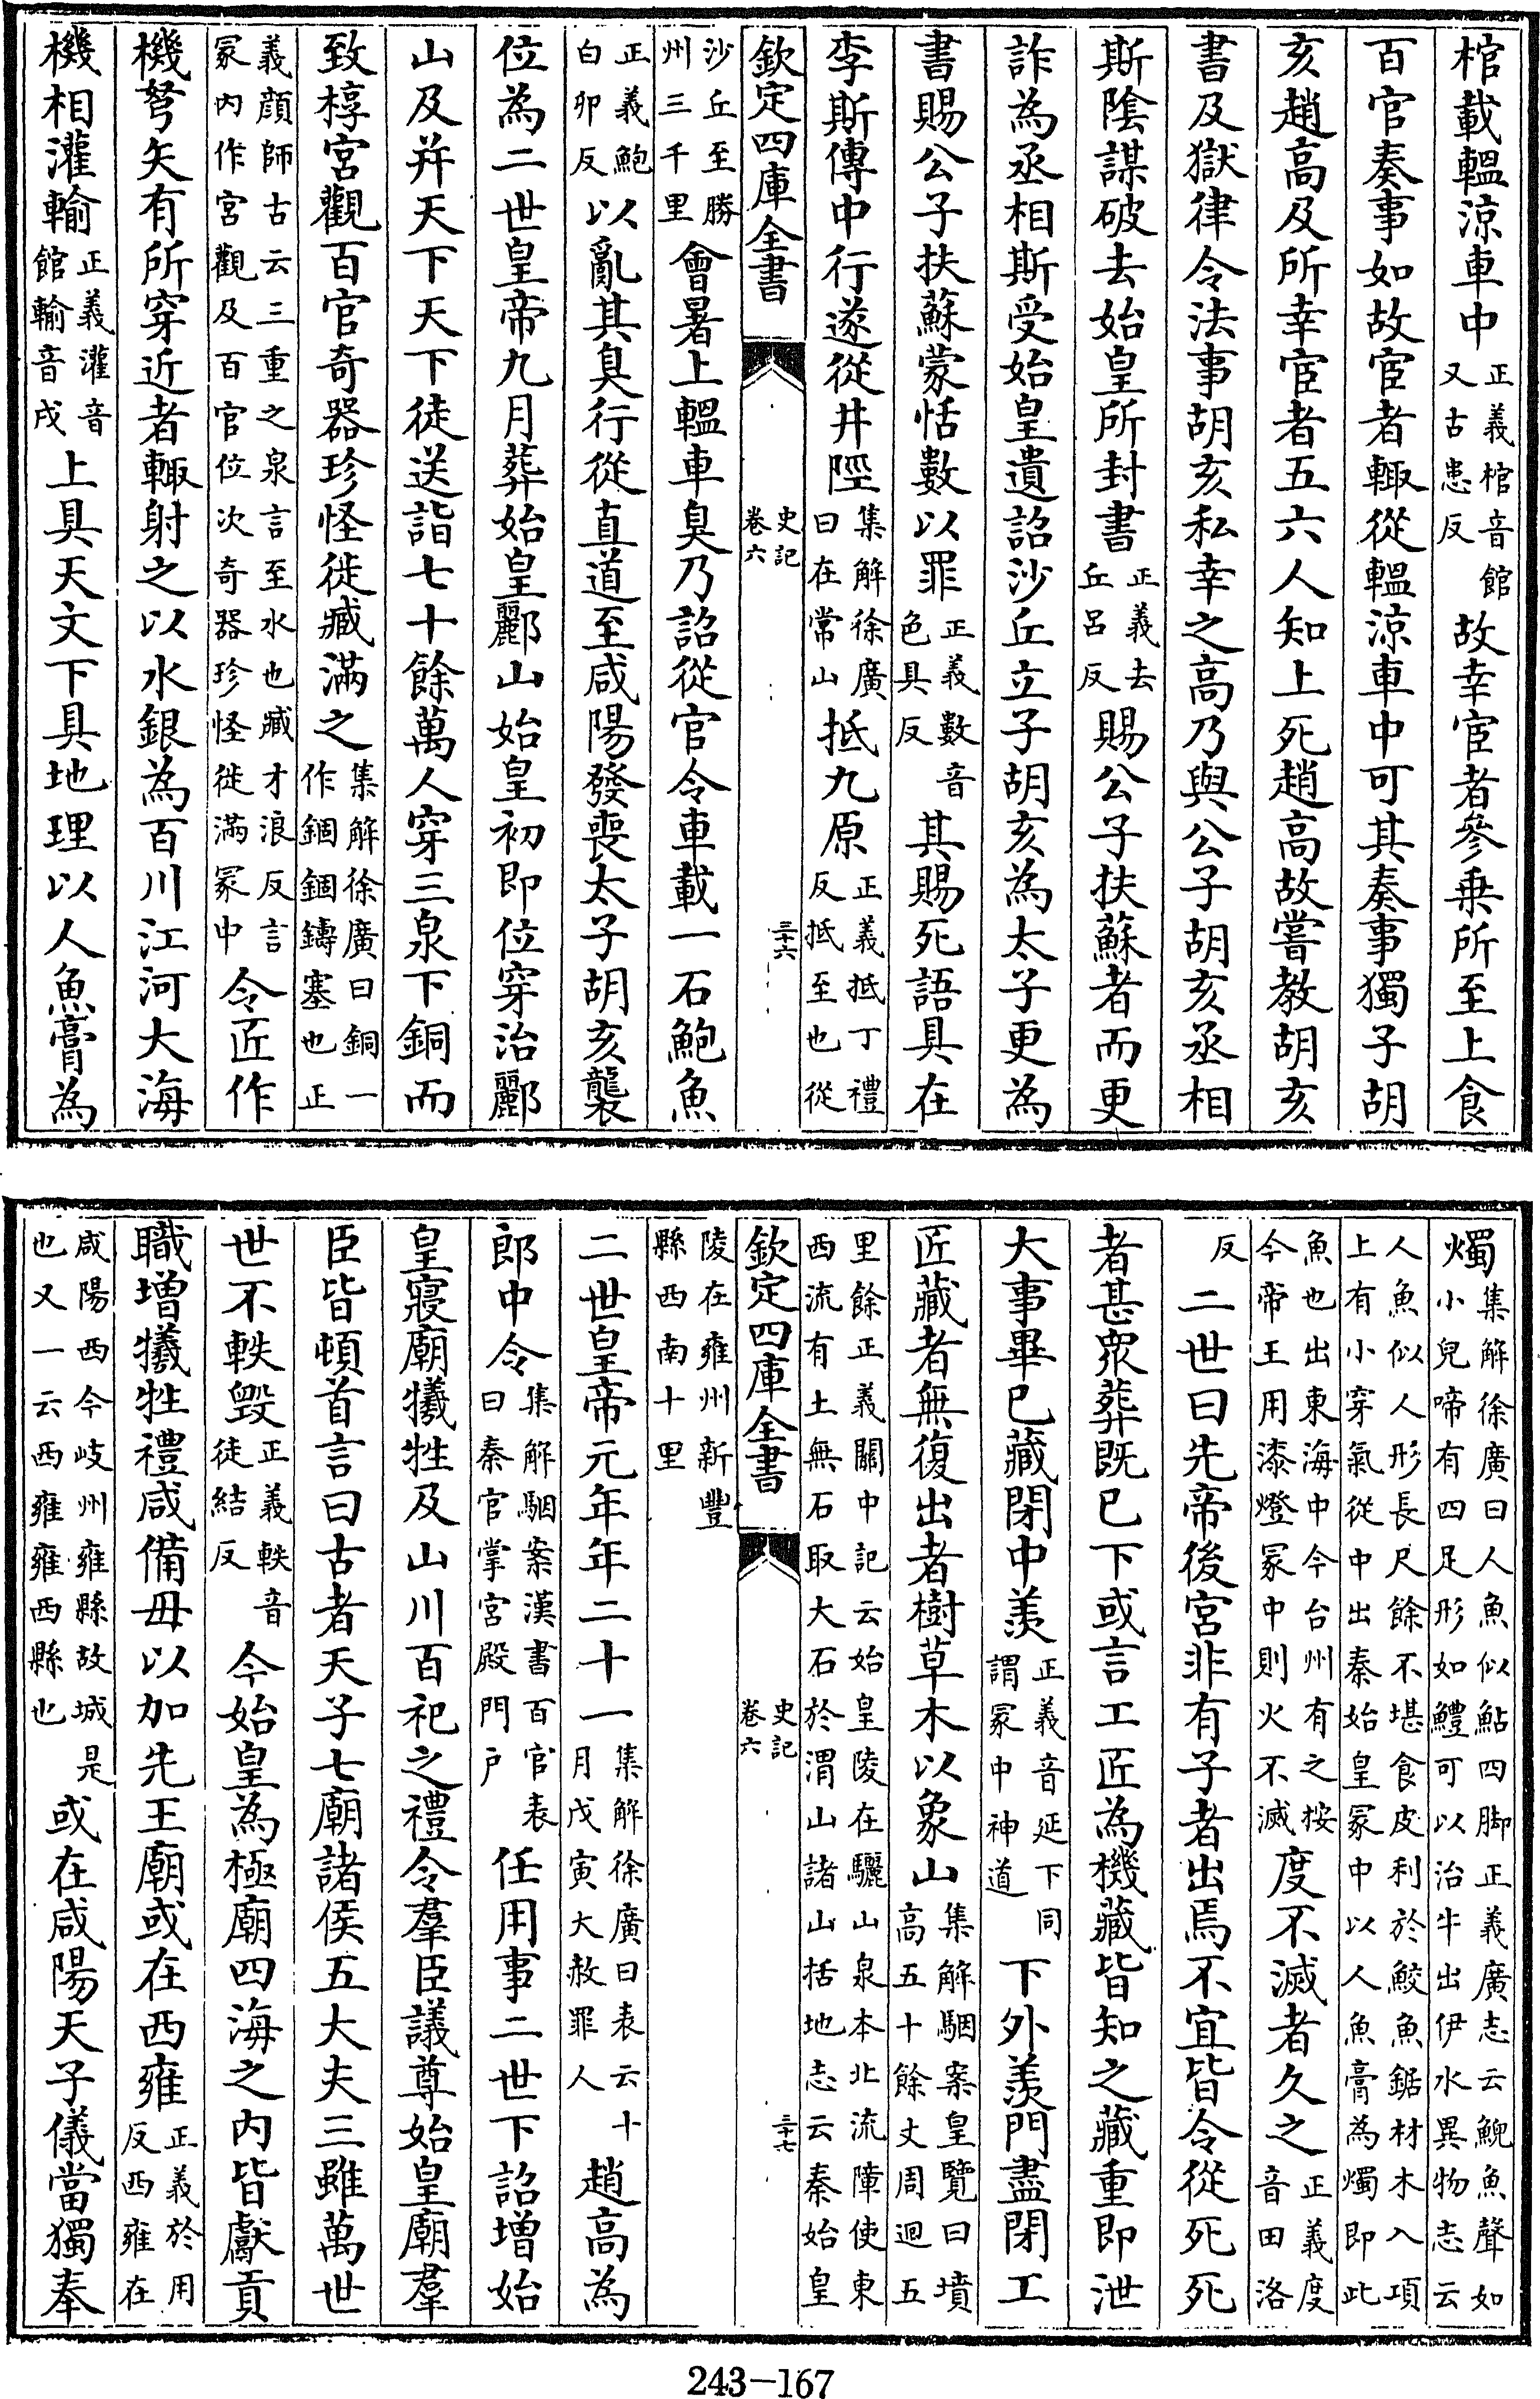 棺載轀涼車中正義棺音館又古患反故幸宦者參乗所至上食
百官奏事如故宦者輒從轀涼車中可其奏事獨子胡
亥趙高及所幸宦者五六人知上死趙高故嘗教胡亥
書及獄律令法事胡亥私幸之高乃與公子胡亥丞相
斯隂謀破去始皇所封書正義去丘呂反賜公子扶蘇者而更
詐為丞相斯受始皇遺詔沙丘立子胡亥為太子更為
書賜公子扶蘇蒙恬數以罪正義數音色具反其賜死語具在
李斯傳中行遂從井陘集解徐廣曰在常山抵九原正義抵丁禮反抵至也從
欽定四庫全書 史記卷六 三十六
沙丘至勝州三千里會暑上轀車臭乃詔從官令車載一石鮑魚
正義鮑白卯反以亂其臭行從直道至咸陽發喪太子胡亥襲
位為二世皇帝九月葬始皇酈山始皇初即位穿治酈
山及并天下天下徒送詣七十餘萬人穿三泉下銅而
致椁宮觀百官奇器珍怪徙臧滿之集解徐廣曰銅一作錮錮鑄塞也正
義顔師古云三重之泉言至水也臧才浪反言冢內作宮觀及百官位次奇器珍怪徙滿冢中令匠作
機弩矢有所穿近者輒射之以水銀為百川江河大海
機相灌輸正義灌音館輸音戍上具天文下具地理以人魚膏為
燭集解徐廣曰人魚似鮎四脚正義廣志云鯢魚聲如小兒啼有四足形如鱧可以治牛出伊水異物志云
人魚似人形長尺餘不堪食皮利於鮫魚鋸材木入項上有小穿氣從中出秦始皇冢中以人魚膏為燭即此
魚也出東海中今台州有之按今帝王用漆燈冢中則火不滅度不滅者久之正義度音田洛
反二世曰先帝後宮非有子者出焉不宜皆令從死死
者甚衆葬既已下或言工匠為機藏皆知之藏重即泄
大事畢已藏閉中羨正義音延下同謂冢中神道下外羨門盡閉工
匠藏者無復出者樹草木以象山集解駰案皇覽曰墳高五十餘丈周迴五
里餘正義關中記云始皇陵在驪山泉本北流障使東西流有土無石取大石於渭山諸山括地志云秦始皇
欽定四庫全書 史記卷六 三十七
陵在雍州新豐縣西南十里
二世皇帝元年年二十一集解徐廣曰表云十月戊寅大赦罪人趙高為
郎中令集解駰案漢書百官表曰秦官掌宮殿門户任用事二世下詔增始
皇寢廟犧牲及山川百祀之禮令羣臣議尊始皇廟羣
臣皆頓首言曰古者天子七廟諸侯五大夫三雖萬世
世不軼毀正義軼音徒結反今始皇為極廟四海之內皆獻貢
職增犧牲禮咸備毋以加先王廟或在西雍正義於用反西雍在
咸陽西今岐州雍縣故城是也又一云西雍雍西縣也或在咸陽天子儀當獨奉
243-167